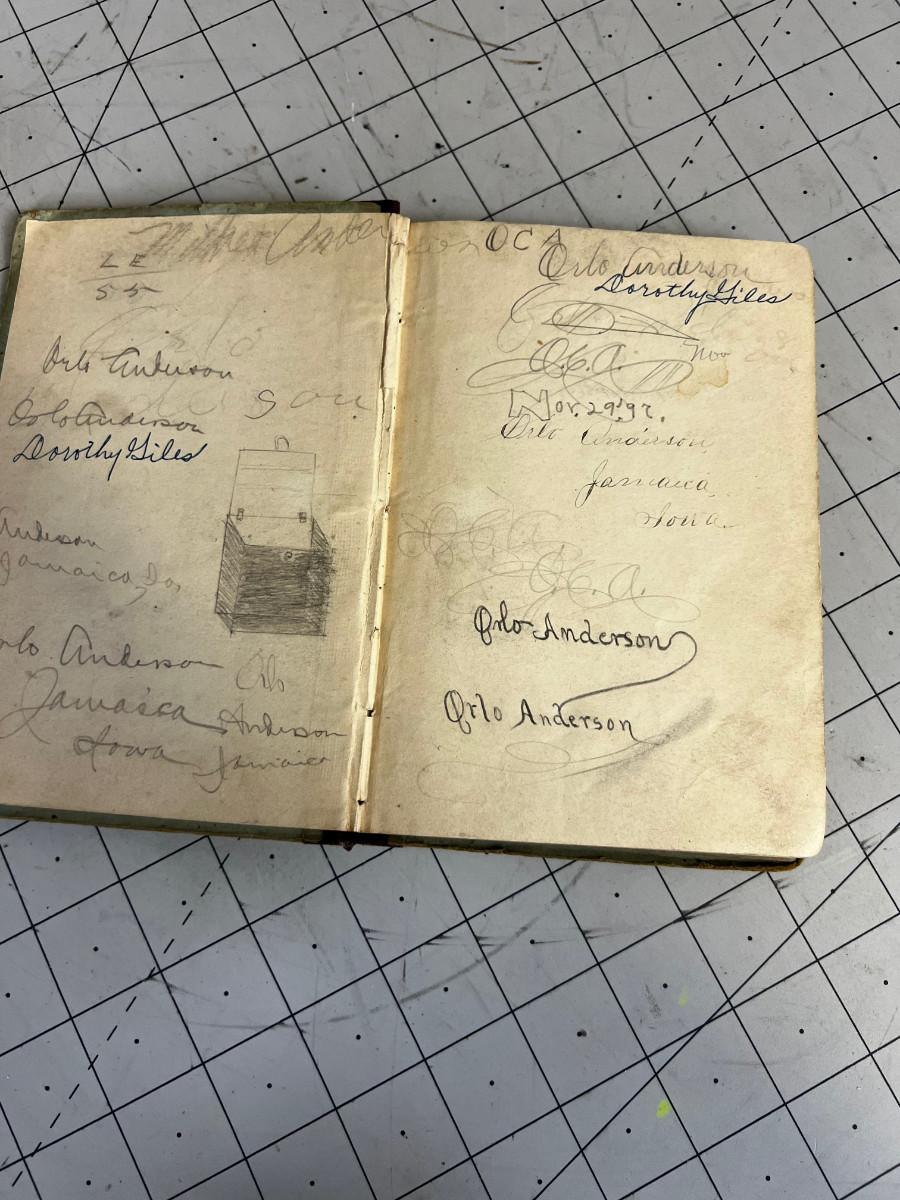 Anderson
L E
55
Orlo Anderson
Orlo Anderson
Dorothy Giles
Anderson
Jamaica Ia,
Orlo Anderson
Jamaica
Iowa
Orlo
Anderson
Jamaica
OCA
Orlo Anderson
Dorothy Giles
Nov
O.C.A.
Nov. 29, '97.
Orlo Anderson,
Jamaica,
Iowa.
O.C.A.
O.C.A.
Orlo Anderson
Orlo Anderson